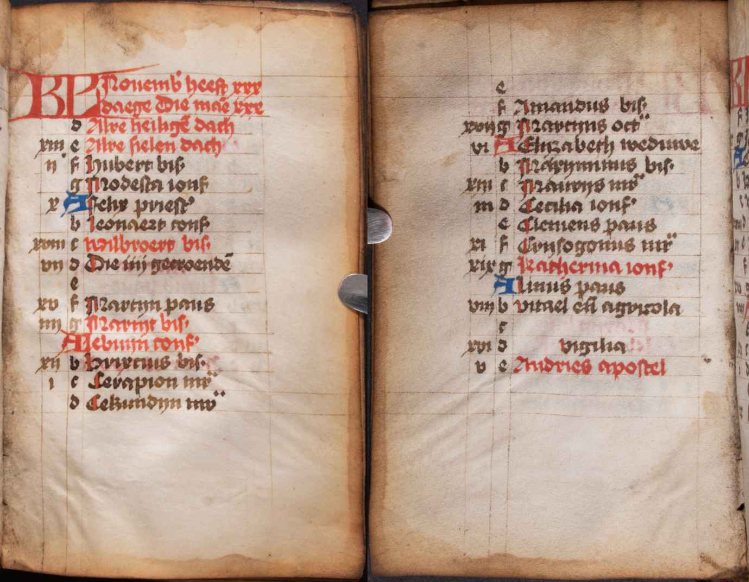 KL Novemb heeft xxx
daege Die mae xxx
d Alre heiligē dach
xiii e Alre sielen dach
ii f Hubert bis
g Modesta ionf
x A Felix priest
b Leonaert conf
xviii c Wilbroert bis
vii d Die iiii gecroende
e
xv f Martyn paus
iiii g Martyn bis
A Lebuun conf
xii b Brixcius bis
i c Serapion mr
d Sekundyn mr
e
f Amandus bis
xvii g Martyns oct
vi A Elizabeth weduwe
b Maxyminus bis
xiiii c Maurys mr
iii d Cecilia ionf
e Clemens paus
xi f Crysogonus mr
xix g Katherina ionf
A Linus paus
viii b vitael eñ agricola
c
xvi d vigilia
v e Andries apostel